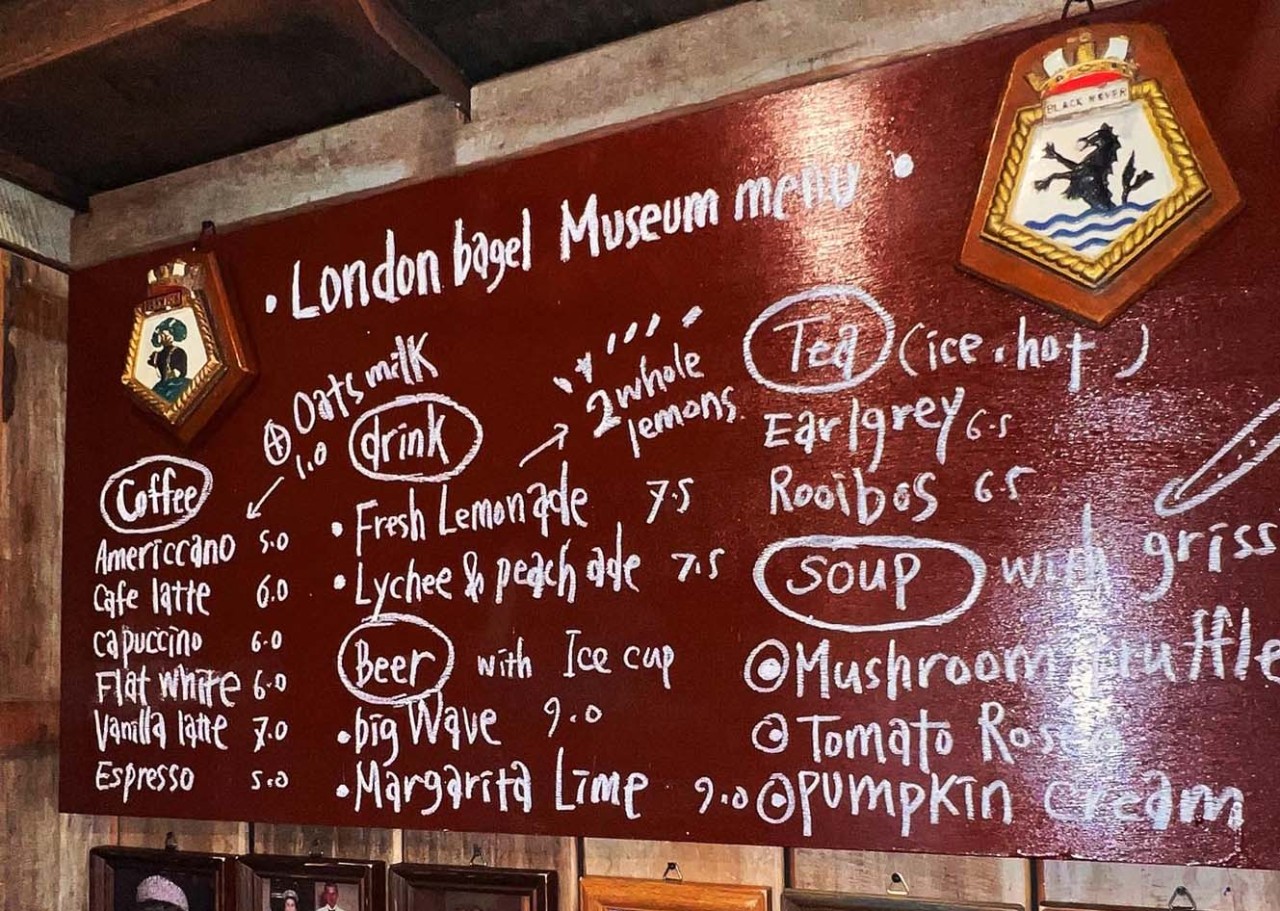 • London bagel Museum menu •
BLACK ROVER
⊕ Oats milk
1.0
Coffee
Americcano 5.0
Cafe latte 6.0
capuccino 6.0
Flat white 6.0
Vanilla latte 7.0
Espresso 5.0
drink
2 whole
lemons
• Fresh Lemonade 7.5
• Lychee & peach ade 7.5
Beer with Ice cup
• big Wave 9.0
• Margarita Lime 9.0
Tea (ice . hot)
Earlgrey 6.5
Rooibos 6.5
soup with griss
Mushroom truffle
Tomato
Pumpkin cream